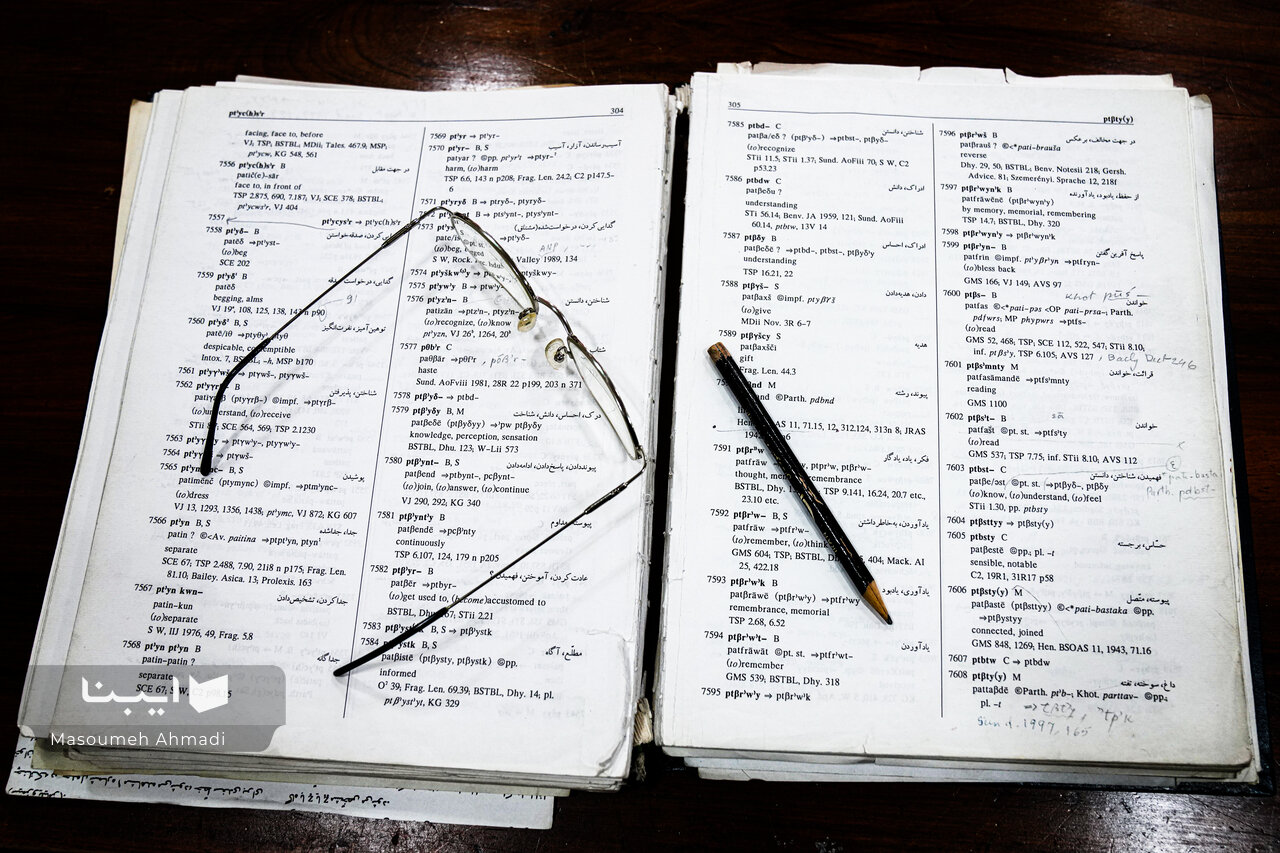 ptʾyc(h)sʾr 304
facing, face to, before
VJ; TSP, BSTBL; MDii; Tales. 467.9, MSP;
ptʾycw, KG 548, 561
7556 ptʾyc(h)sʾr B
در جهت مقابل
patič(e)-sār
face to, in front of
TSP 2.875, 690, 7.187; VJ; SCE 378, BSTBL;
ptʾycwsʾr, VJ 404
7557 ptʾycysʾr ⇒ptʾyc(h)sʾr
7558 ptʾyδ– B
patēδ ⇒ptʾyst–
(to)beg
SCE 202
7559 ptʾyδʾ B
patēδ
begging, alms
VJ 19ᵃ, 108, 125, 138, 143 n p90
7560 ptʾyδʾ B, S
توهین‌آمیز، نفرت‌انگیز
despicable, contemptible
Intox. 7, BSTBL, -h, MSP b170
7561 ptʾyγʾwš– ⇒ ptγwš–, ptyγwš–
شناختن، پذیرفتن
(to)understand, (to)receive
STii 8; SCE 564, 569; TSP 2.1230
7563
7564
7565 B, S
پوشیدن
patimēnč (ptymync) ©impf. ⇒ptmʾync–
(to)dress
VJ 13, 1293, 1356, 1438; ptʾymc, VJ 872; KG 607
7566 ptʾyn B, S
جدا، جداشده
patin ? ©<Av. paitina ⇒ptpʾtʾyn, ptynʾ
separate
SCE 67; TSP 2.488, 7.90, 21i8 n p175; Frag. Len.
81.10; Bailey. Asica. 13; Prolexis. 163
7567 ptʾyn kwn–
جداکردن، تشخیص‌دادن
patin-kun
(to)separate
S W, IIJ 1976, 49, Frag. 5.8
7568 ptʾyn ptʾyn B
جداگانه
patin-patin ?
separate
SCE 67; S W, C2 p98.15
7569 ptʾyr ⇒ ptʾyr–
7570 ptʾyr– B, S
آسیب‌رساندن، آزار، آسیب
patyar ? ©pp. ptʾyrʾt ⇒ptyr–¹
harm, (to)harm
TSP 6.6, 143 n p208; Frag. Len. 24.2; C2 p147.5-
6
7571 ptʾyrγδ ⇒ ptryδ–, ptyryδ–
B ⇒ ptsʾynt–, ptysʾynt–
گدایی کردن، درخواست‌شده(مشتاق)
(to)beg, begged
S W, Rock. Valley 1989, 134
7574 ptʾyškwᵚʾy ⇒ ptyškwy–
7575 ptʾywʾy B ⇒ ptwʾy–
7576 ptʾyzʾn– B
شناختن، دانستن
patizān ⇒ptzʾn–, ptyzʾn–
(to)recognize, (to)know
ptʾyzn, VJ 26ᵇ, 1264, 20ᵇ
7577 ptθbʾr C
شتاب
paθβār ⇒pθfʾr
haste
Sund. AoFviii 1981, 28R 22 p199, 203 n 371
7578 ptβʾyδ– ⇒ ptbd–
7579 ptβʾyδy B, M
درک، احساس، دانش، شناخت
patβeδē (ptβyδyy) ⇒ʾpw ptβyδy
knowledge, perception, sensation
BSTBL, Dhu. 123; W–Lii 573
7580 ptβʾynt– B, S
پیونددادن، پاسخ‌دادن، ادامه‌دادن
patβend ⇒ptbynt–, pcβynt–
(to)join, (to)answer, (to)continue
VJ 290, 292; KG 340
7581 ptβʾyntʾy B
پیوسته، مداوم
patβendē ⇒pcβʾnty
continuously
TSP 6.107, 124, 179 n p205
7582 ptβʾyr– B
عادت کردن، آموختن، فهمیدن؟
patβēr ⇒ptbyr–
(to)get used to, (become)accustomed to
BSTBL, Dhu. 67; STii 2.21
7583 ptβʾystʾk B, S ⇒ ptβʾystk
7584 ptβʾystk B, S
مطلّع، آگاه
patβistē (ptβysty, ptβystk) ©pp.
informed
O² 39; Frag. Len. 69.39, BSTBL, Dhy. 14; pl.
ptβʾystʾyt, KG 329
305 ptβty(y)
7585 ptbd– C
شناختن، دانستن
patβa/eδ ? (ptβʾyδ–) ⇒ptbst–, ptβyδ–
(to)recognize
STii 11.5; STii 1.37; Sund. AoFiii 70; S W, C2
p53.23
7586 ptbdw C
ادراک، دانش
patβeδu ?
understanding
STi 56.14; Benv. JA 1959, 121; Sund. AoFiii
60.14, ptbtw. 13V 14
7587 ptβδy B
ادراک، احساس
patβeδē ? ⇒ptbd–, ptbst–, ptβyδʾy
understanding
TSP 16.21, 22
7588 ptβyš– S
دادن، هدیه‌دادن
patβaxš ©impf. ptyβʾγš
(to)give
MDii Nov. 3R 6–7
7589 ptβγšcy S
هدیه
patβaxšči
gift
Frag. Len. 44.3
M
پیوند، رشته
©Parth. pdbnd
Hen. OAS 11, 71.15, 12, 312.124, 313n 8; JRAS
7591 B, S
فکر، یاد، یادگار
thought, memory, remembrance
BSTBL, Dhy. TSP 9.141, 16.24, 20.7 etc.,
23.10 etc.
7592 ptβrʾw– B, S
یادآوردن، به‌خاطرداشتن
patfrāw ⇒ptfrʾw–
(to)remember, (to)think
GMS 604; TSP; BSTBL, Dh. 404; Mack. AI
25, 422.18
7593 ptβrʾwʾk B
یادآوری، یادبود
patβrāwē (ptβrʾwʾy) ⇒ptfrʾwy
remembrance, memorial
TSP 2.68, 6.52
7594 ptβrʾwʾt– B
یادآوردن
patfrāwāt ©pt. st. ⇒ptfrʾwt–
(to)remember
GMS 539; BSTBL, Dhy. 318
7595 ptβrʾwʾy ⇒ ptβrʾwʾk
7596 ptβrʾwš B
در جهت مخالف، برعکس
patβrauš ? ©<*pati-brauša
reverse
Dhy. 29, 50, BSTBL; Benv. Notesii 218; Gersh.
Advice. 81; Szemerényi. Sprache 12, 218f
7597 ptβrʾwynʾk B
از حفظ، یادبود، یادآورنده
patfrāwēnē (ptβrʾwynʾy)
by memory, memorial, remembering
TSP 14.7; BSTBL, Dhy. 320
7598 ptβrʾwynʾy ⇒ ptβrʾwynʾk
7599 ptβrʾyn– B
پاسخ آفرین گفتن
patfrin ©impf. ptʾyβrʾyn ⇒ptfryn–
(to)bless back
GMS 166, VJ 149, AVS 97
7600 ptβs– B
خواندن
patfas ©<*pati-pas <OP pati-prsa–; Parth.
pdfwrs; MP phypwrs ⇒ptfs–
(to)read
GMS 52, 468; TSP; SCE 112, 522, 547; STii 8.10;
inf. ptβsʾy, TSP 6.105, AVS 127, Baily Dict 246
7601 ptβsʾmnty M
قرائت، خواندن
patfasāmandē ⇒ptfsʾmnty
reading
GMS 1100
7602 ptβsʾt– B
خواندن
patfašt ©pt. st. ⇒ptfsʾty
(to)read
GMS 537; TSP 7.75, inf. STii 8.10, AVS 112
7603 ptbst– C
فهمیدن، شناختن، دانستن
patβe/ost ©pt. st. ⇒ptβyδ–, ptβδy
(to)know, (to)understand, (to)feel
Parth. pdbst-
STii 1.30, pp. ptbsty
7604 ptβsttyy ⇒ ptβsty(y)
7605 ptbsty C
حسّاس، برجسته
patβestē ©pp.; pl. –t
sensible, notable
C2, 19R1, 31R17 p58
7606 ptβsty(y) M
پیوسته، متّصل
patβastē (ptβsttyy) ©<*pati-bastaka ©pp.
⇒ptβystyy
connected, joined
GMS 848, 1269; Hen. BSOAS 11, 1943, 71.16
7607 ptbtw C ⇒ ptbdw
7608 ptβty(y) M
داغ، سوخته، تفته
pattaβdē ©Parth. ptʾb–; Khot. parttav– ©pp.;
pl. –t
Sund. 1997, 165
ایبنا
Masoumeh Ahmadi